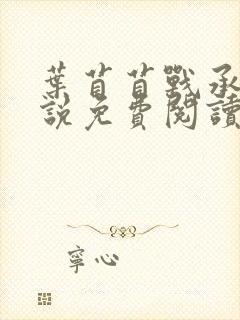 葉苜苜戰承
說免費閱讀
寧心